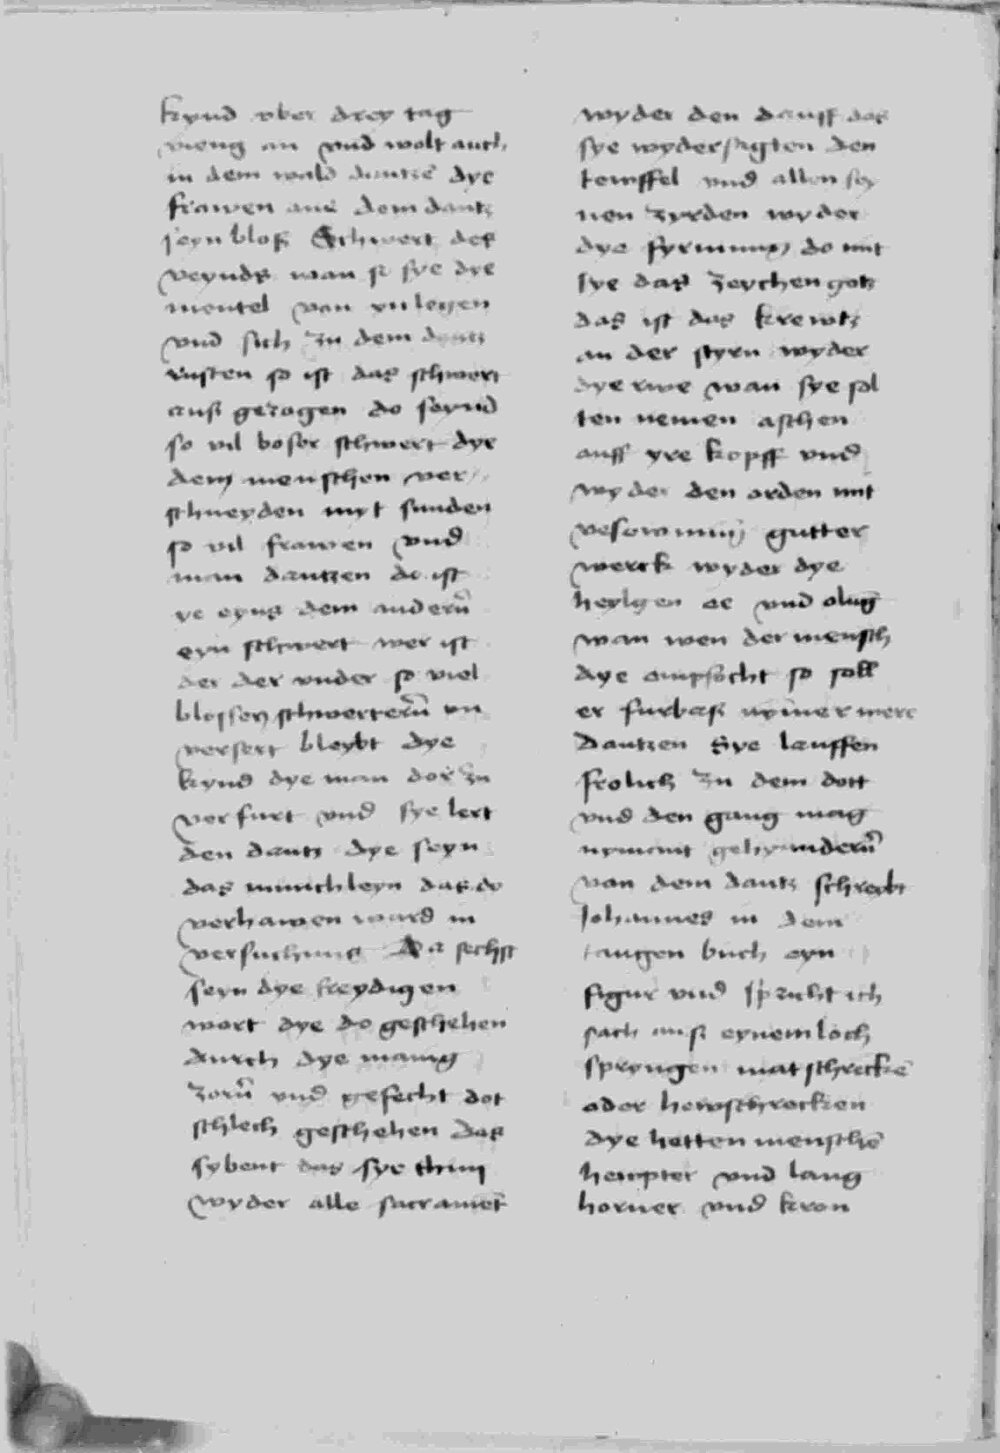 kynd vber drey tag
vieng an vnd wolt auch
in dem wald dantzē dye
frawen auē dem dantz
seyn blos Schwert des
veynds wan so sye dye
mentel von yn legen
vnd sich zu dem dantz
rusten so ist das schwert
auß gezogen do seynd
so vil boser schwert dye
dem menschen ver
schneyden myt sunden
so vil frawen vnd
man dantzen do ist
ye eyns dem andern̄
eyn schwert wer ist
der der vnder so viel
blossen schwertern̄ vn
versert bleybt dye
kynd dye man dor zu
verfurt vnd sye lert
den dantz dye seyn
das munchleyn das do
verhawen ward in
versuchung Da sechst
seyn dye kreydigen
wort dye do geschehen
durch dye manig
zorn̄ vnd gefecht dot
schlech geschehen das
sybent das sye thun
wyder alle sacramēt
wyder den dauff das
sye wydersagten den
tewffel vnd allen sey
nen zyrden wyder
dye fyrmung do mit
sye das zeychen gotz
das ist das krewtz
an der styrn wyder
dye rwe wan sye sol
ten nemen aschen
auff yre kopff vnd
wyder den orden mit
vesawmung gutter
werck wyder dye
heylgen ee vnd olūg
wan wen der mensch
dye empfecht so soll
er furbaß nymer mere
Dantzen Sye lauffen
frolich zu dem dott
vnd den gang mag
nymant gehyndern̄
von dem dantz schreybt
Johannes in dem
taugen buch eyn
figur vnd spricht ich
sach auß eynem loch
spryngen matschreckē
oder hewschrecken
dye hetten menschē
hewpter vnd lang
horner vnd kron